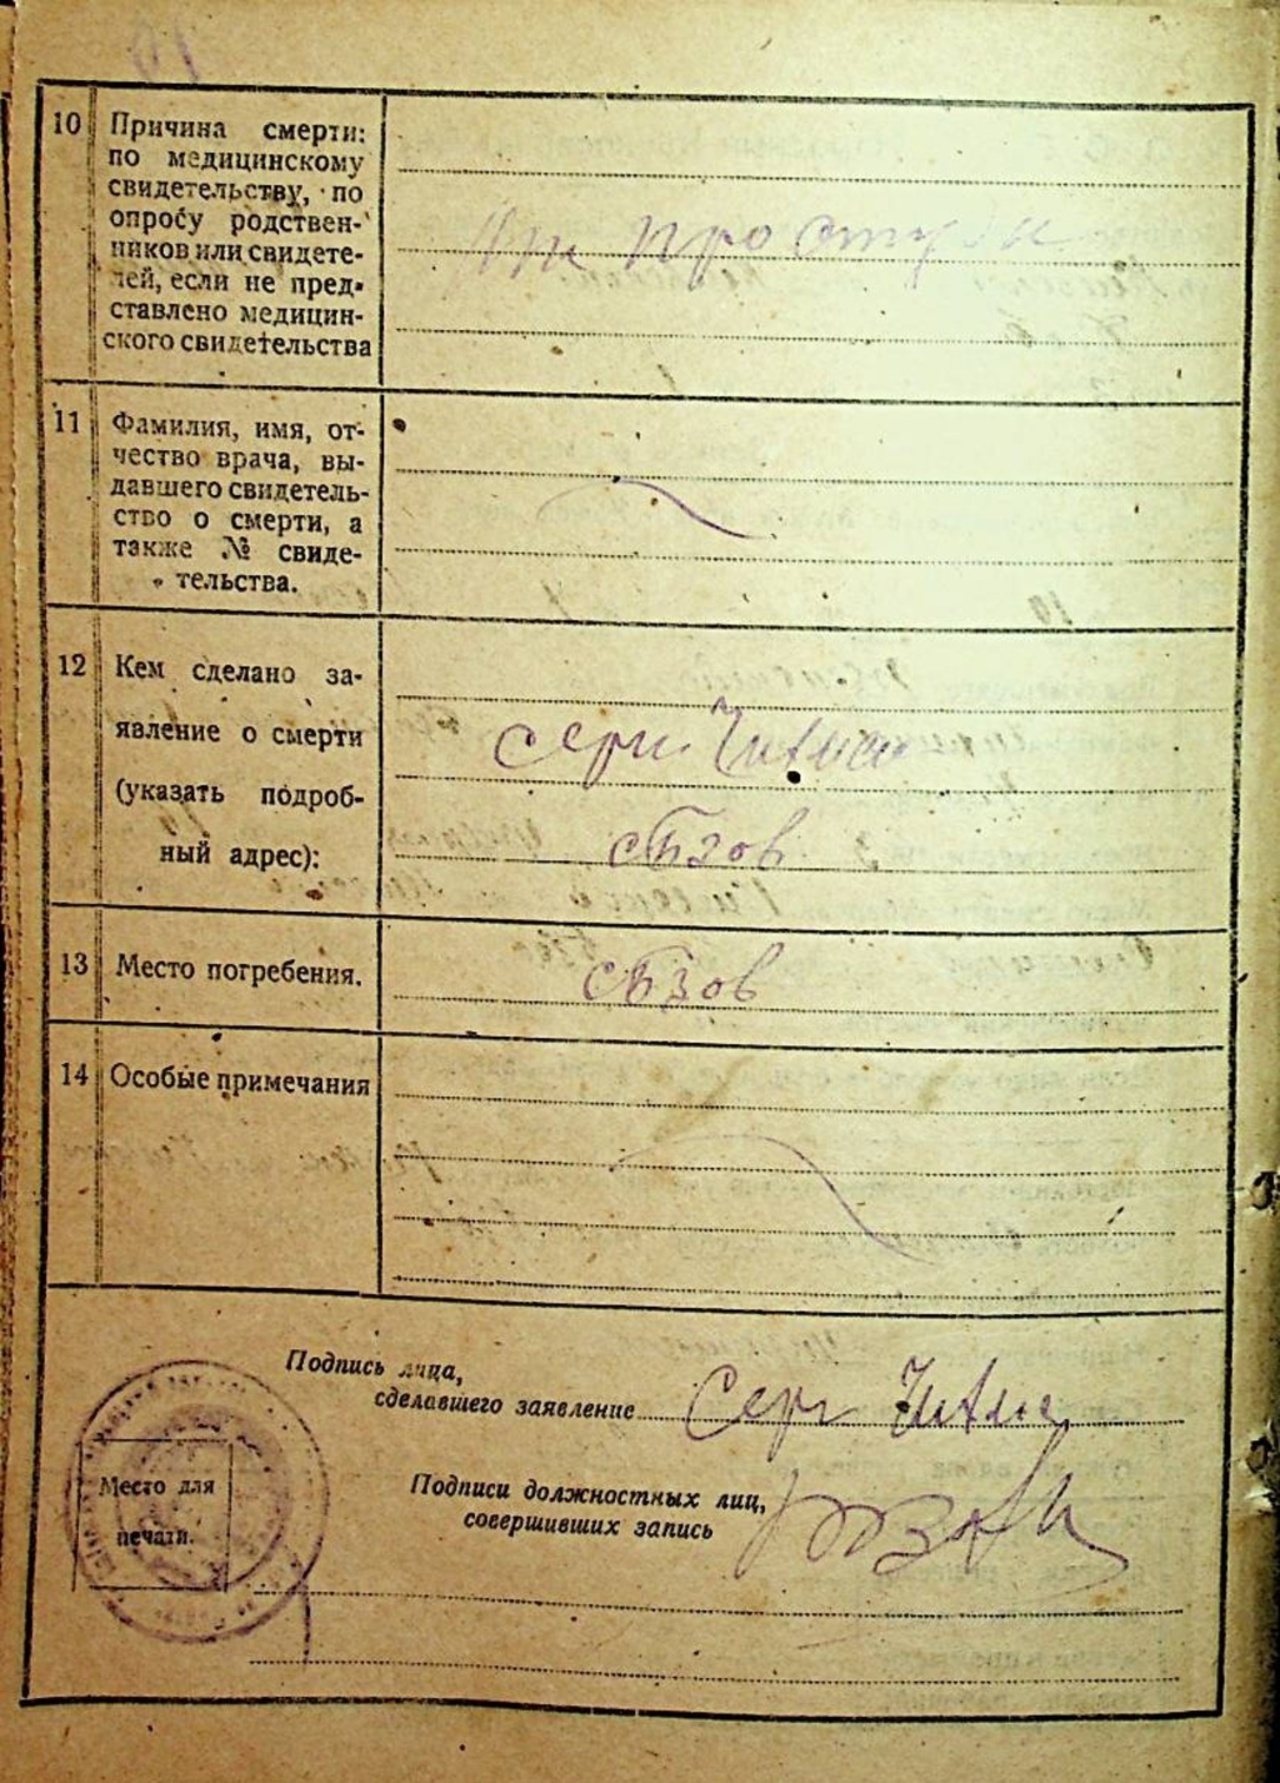 10 Причина смерти:
по медицинскому
свидетельству, по
опросу родствен-
ников или свидете-
лей, если не пред-
ставлено медицин-
ского свидетельства
от простуды
11 Фамилия, имя, от-
чество врача, вы-
давшего свидетель-
ство о смерти, а
также № свиде-
тельства.
12 Кем сделано за-
явление о смерти
(указать подроб-
ный адрес):
Серг
с Бзов
13 Место погребения.
с Бзов
14 Особые примечания
Подпись лица,
сделавшего заявление Серг
Подписи должностных лиц,
совершивших запись
Место для
печати.